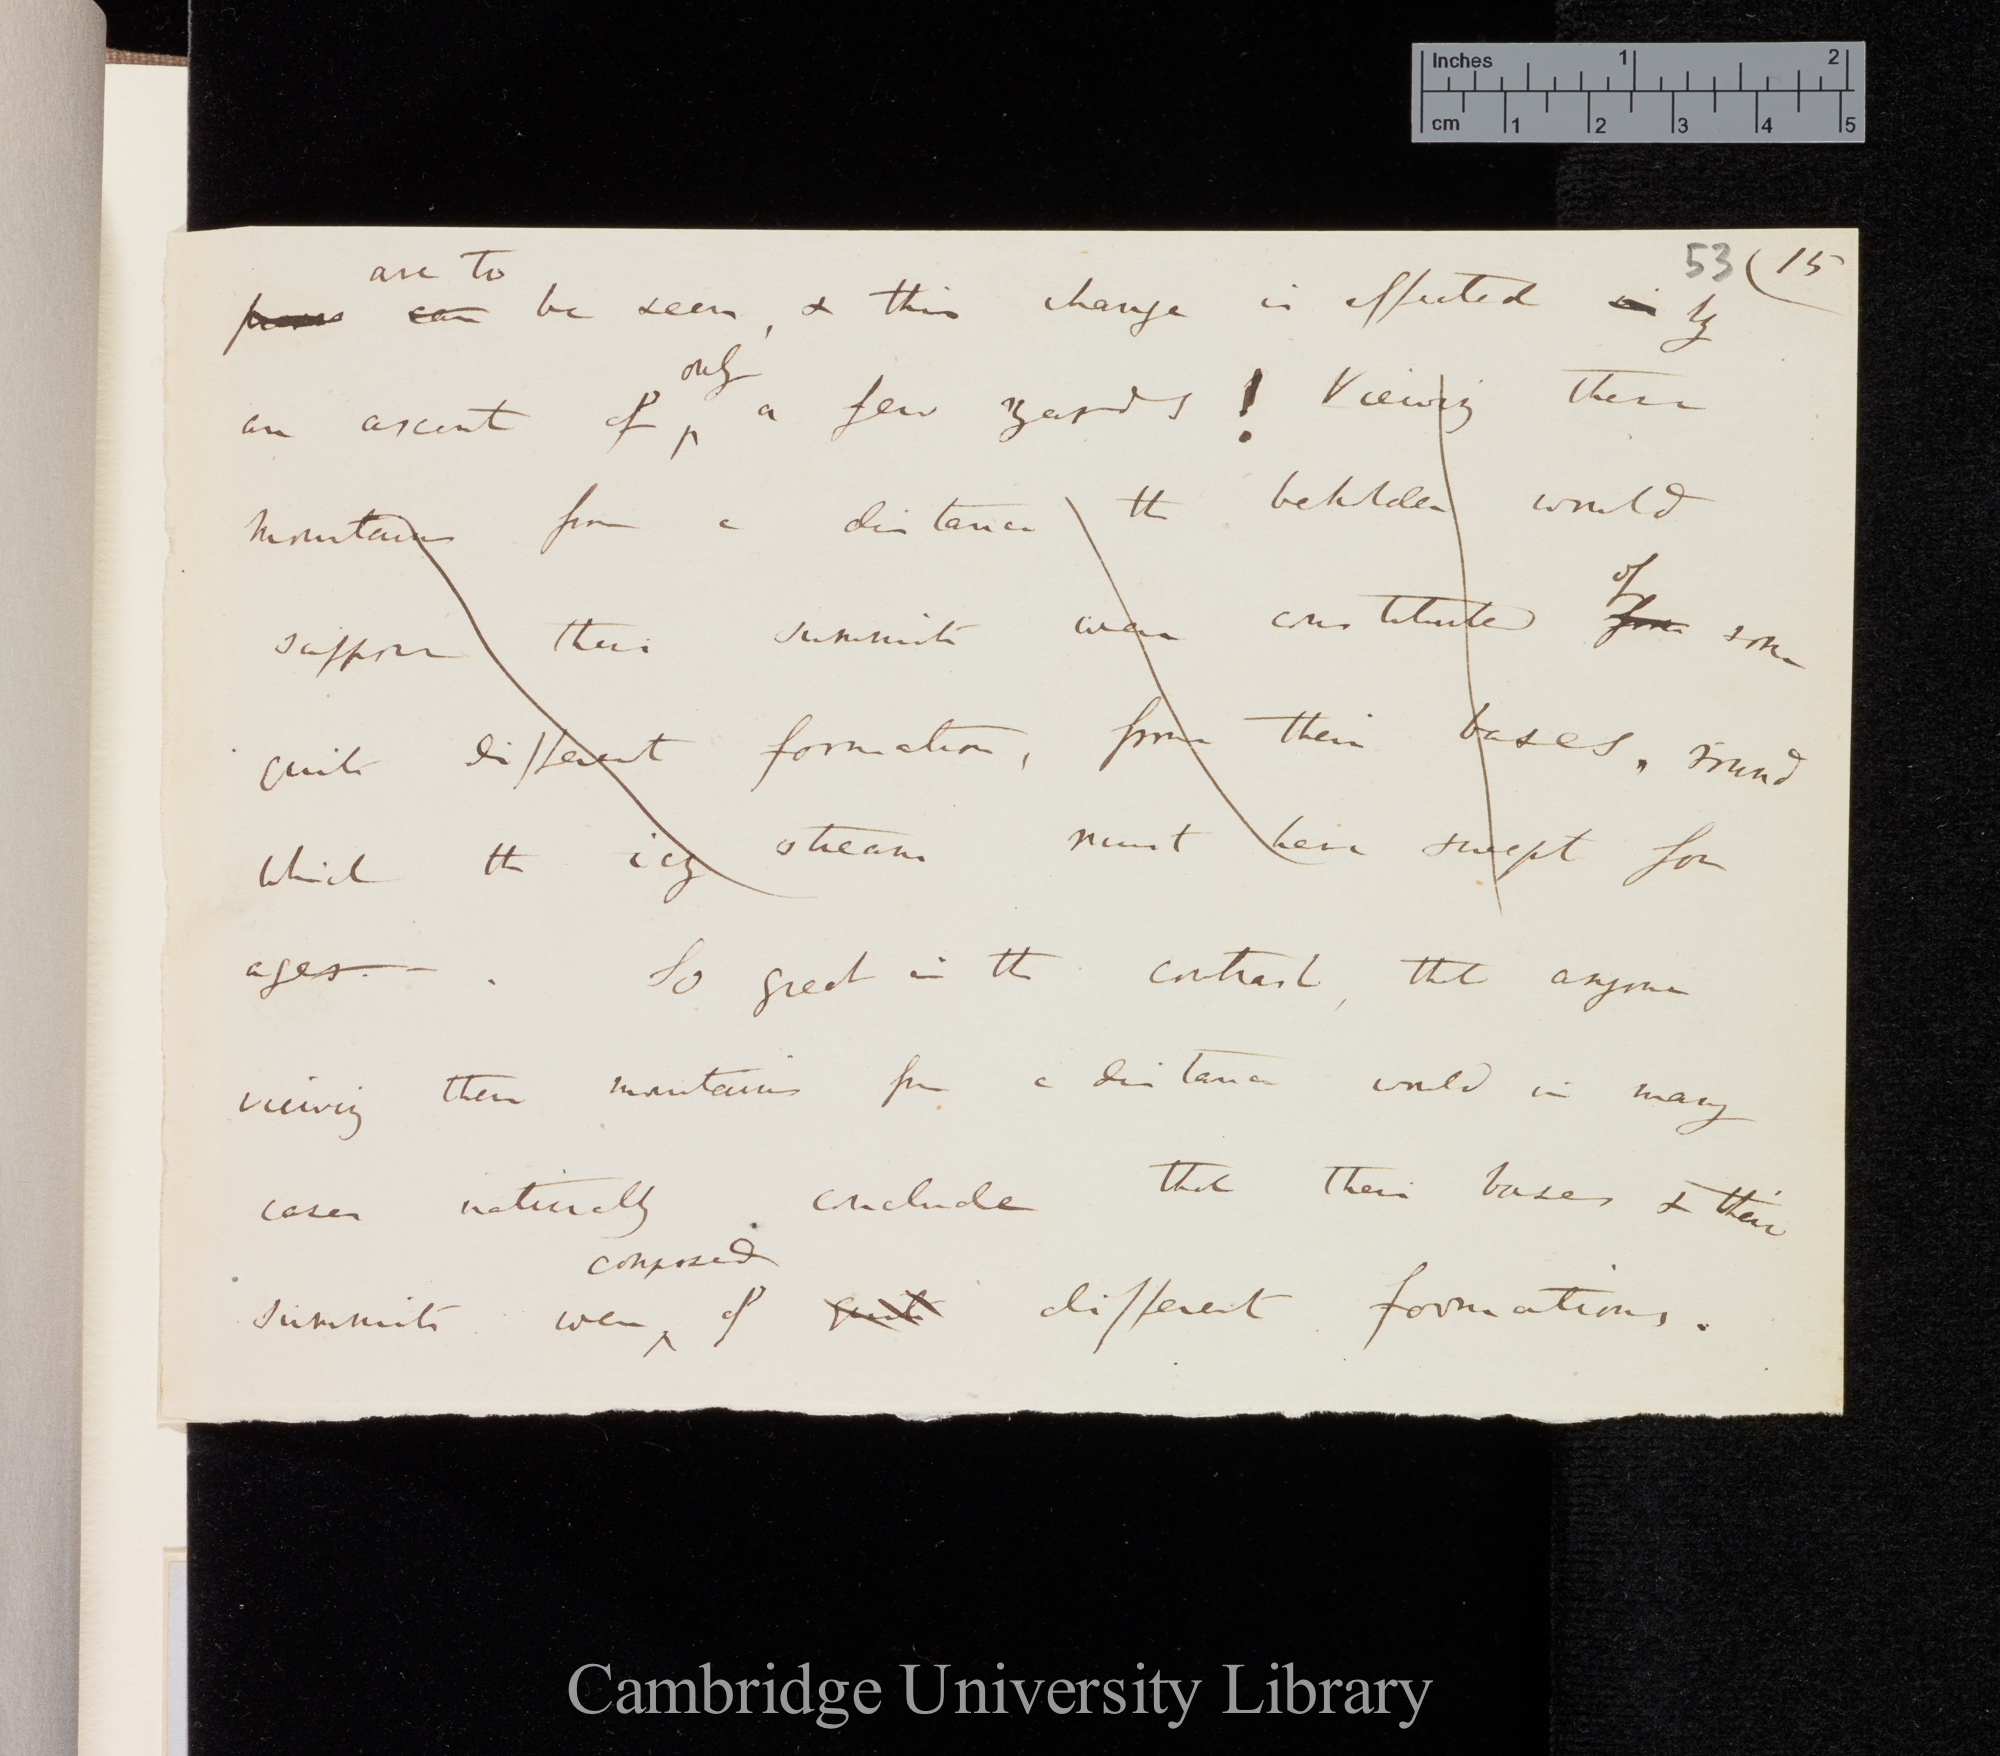 Inches 1 2
cm 1 2 3 4 5
53 (15
are to
can be seen, & this change is effected in by
only
an ascent of a few yards! Viewing these
mountains from a distance the beholder would
of
suppose their summits were constituted from some
quite different formation, from their bases, round
which the icy stream must have swept for
ages.— . So great is the contrast, that anyone
viewing these mountains from a distance would in many
cases naturally conclude that their bases & their
composed
summits were of quite different formations.
Cambridge University Library